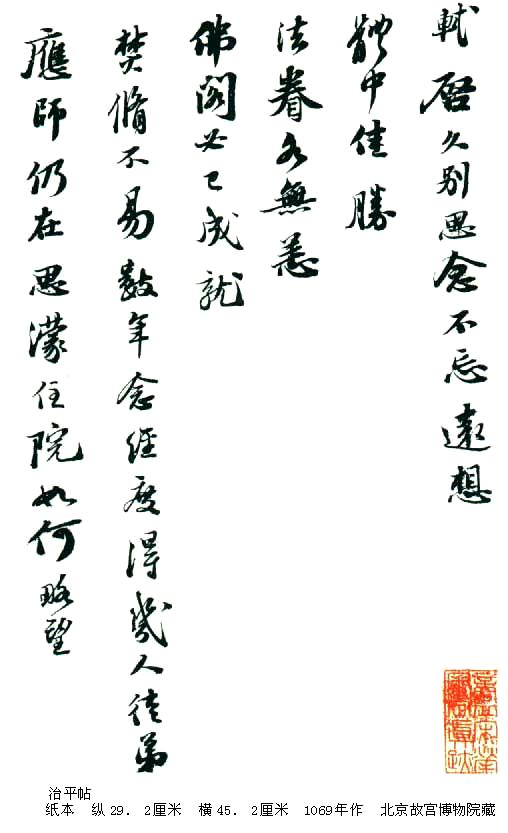 軾啓久别思念不忘遠想
體中佳勝
法眷各無恙
佛閣必已成就
焚脩不易數年念經度得幾人徒弟
應師仍在思濛住院如何略望
治平帖
纸本 纵29．2厘米 横45．2厘米 1069年作 北京故宫博物院藏